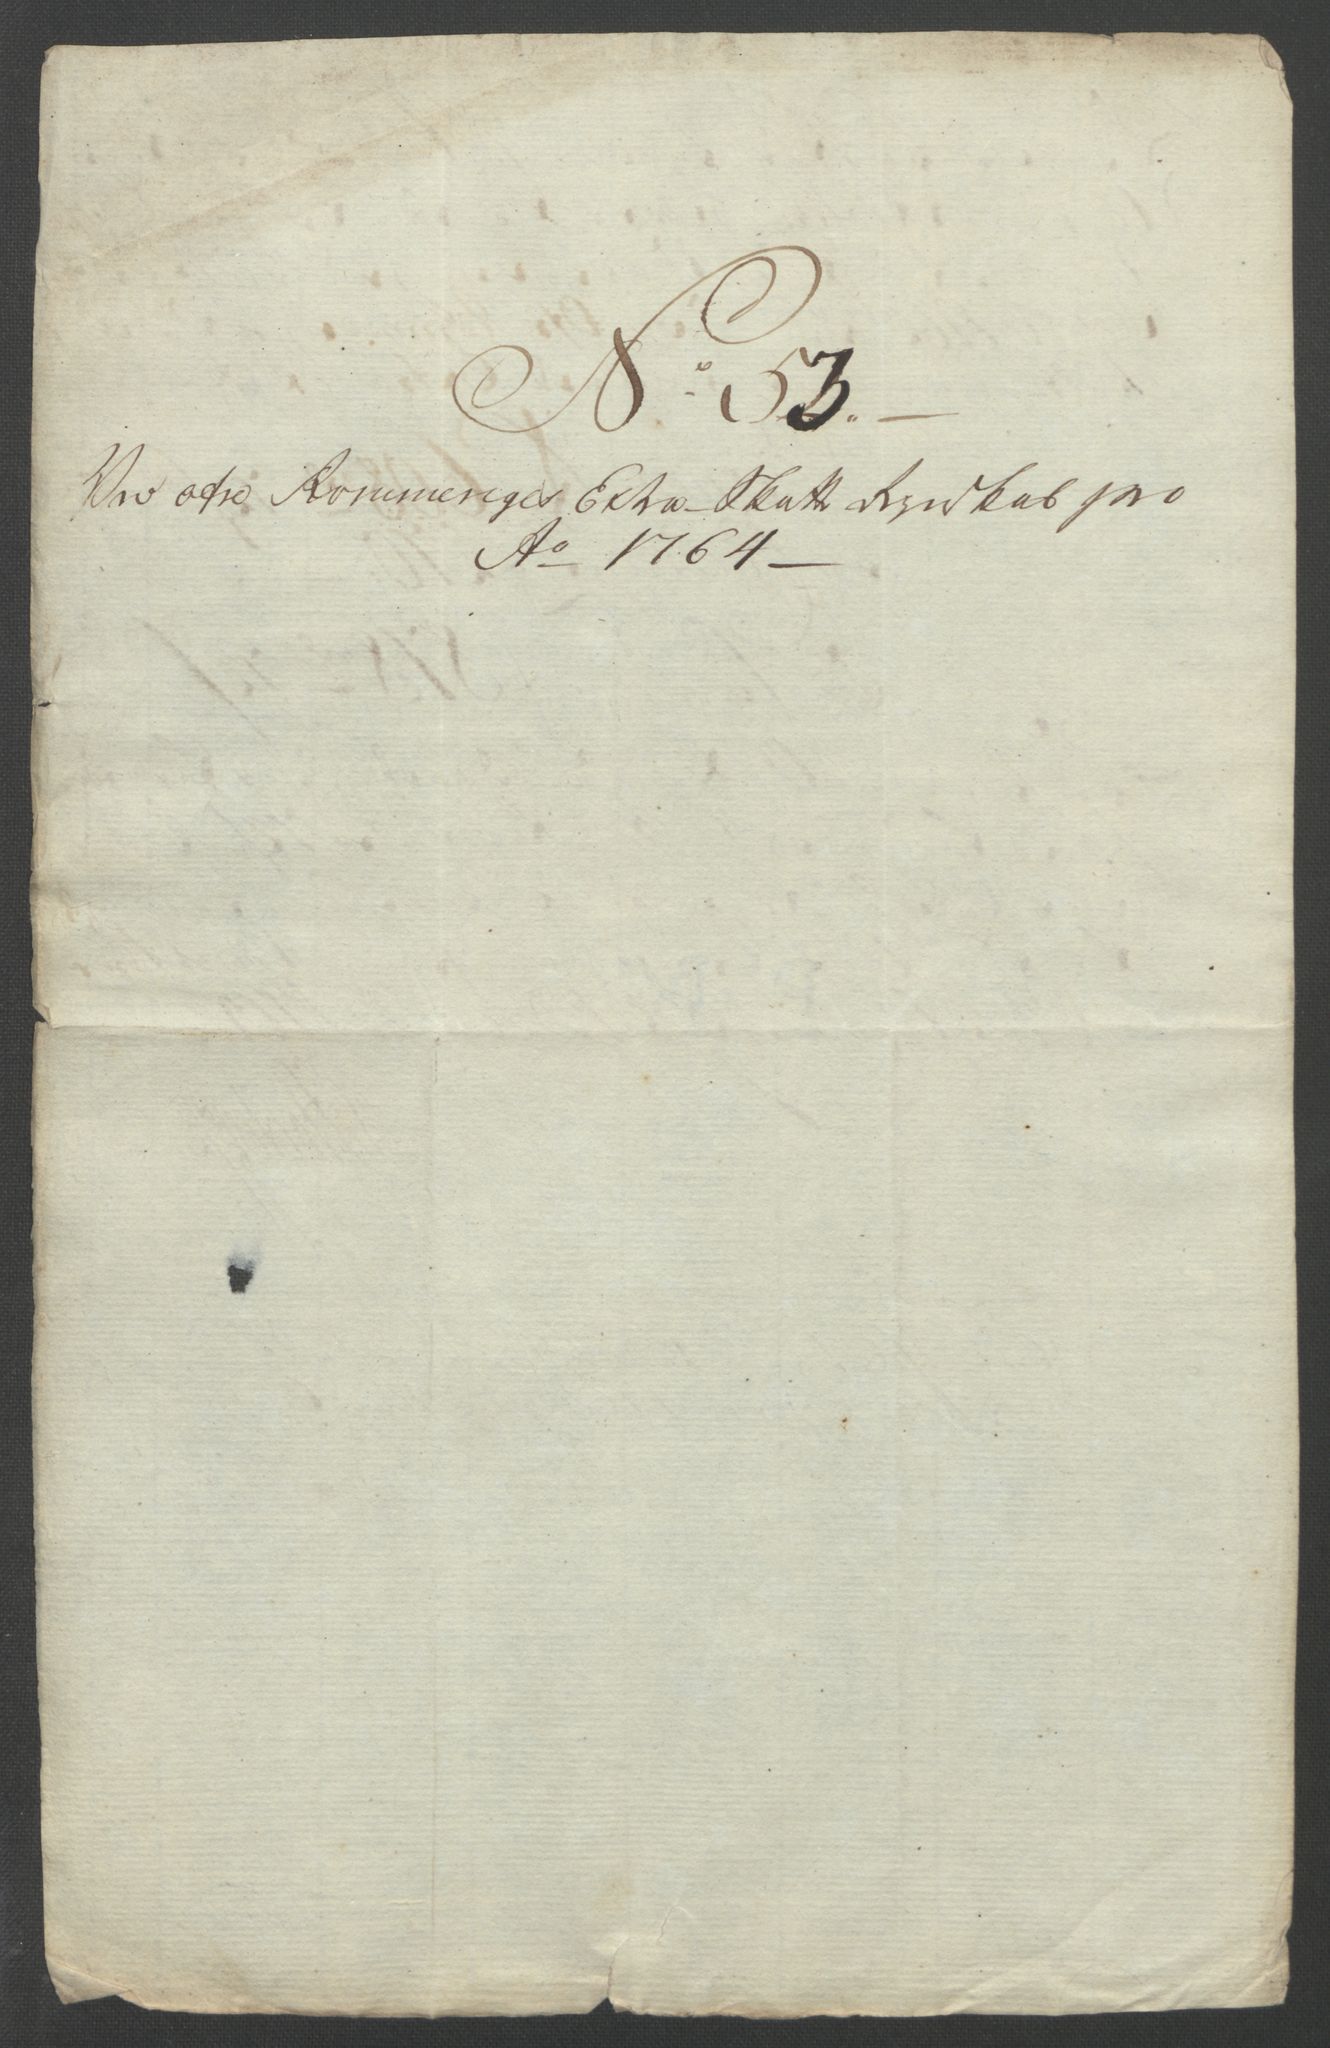 No 53.
Ved øfre Rommeriges Extra-Skatte Regnskab pro
Ao 1764